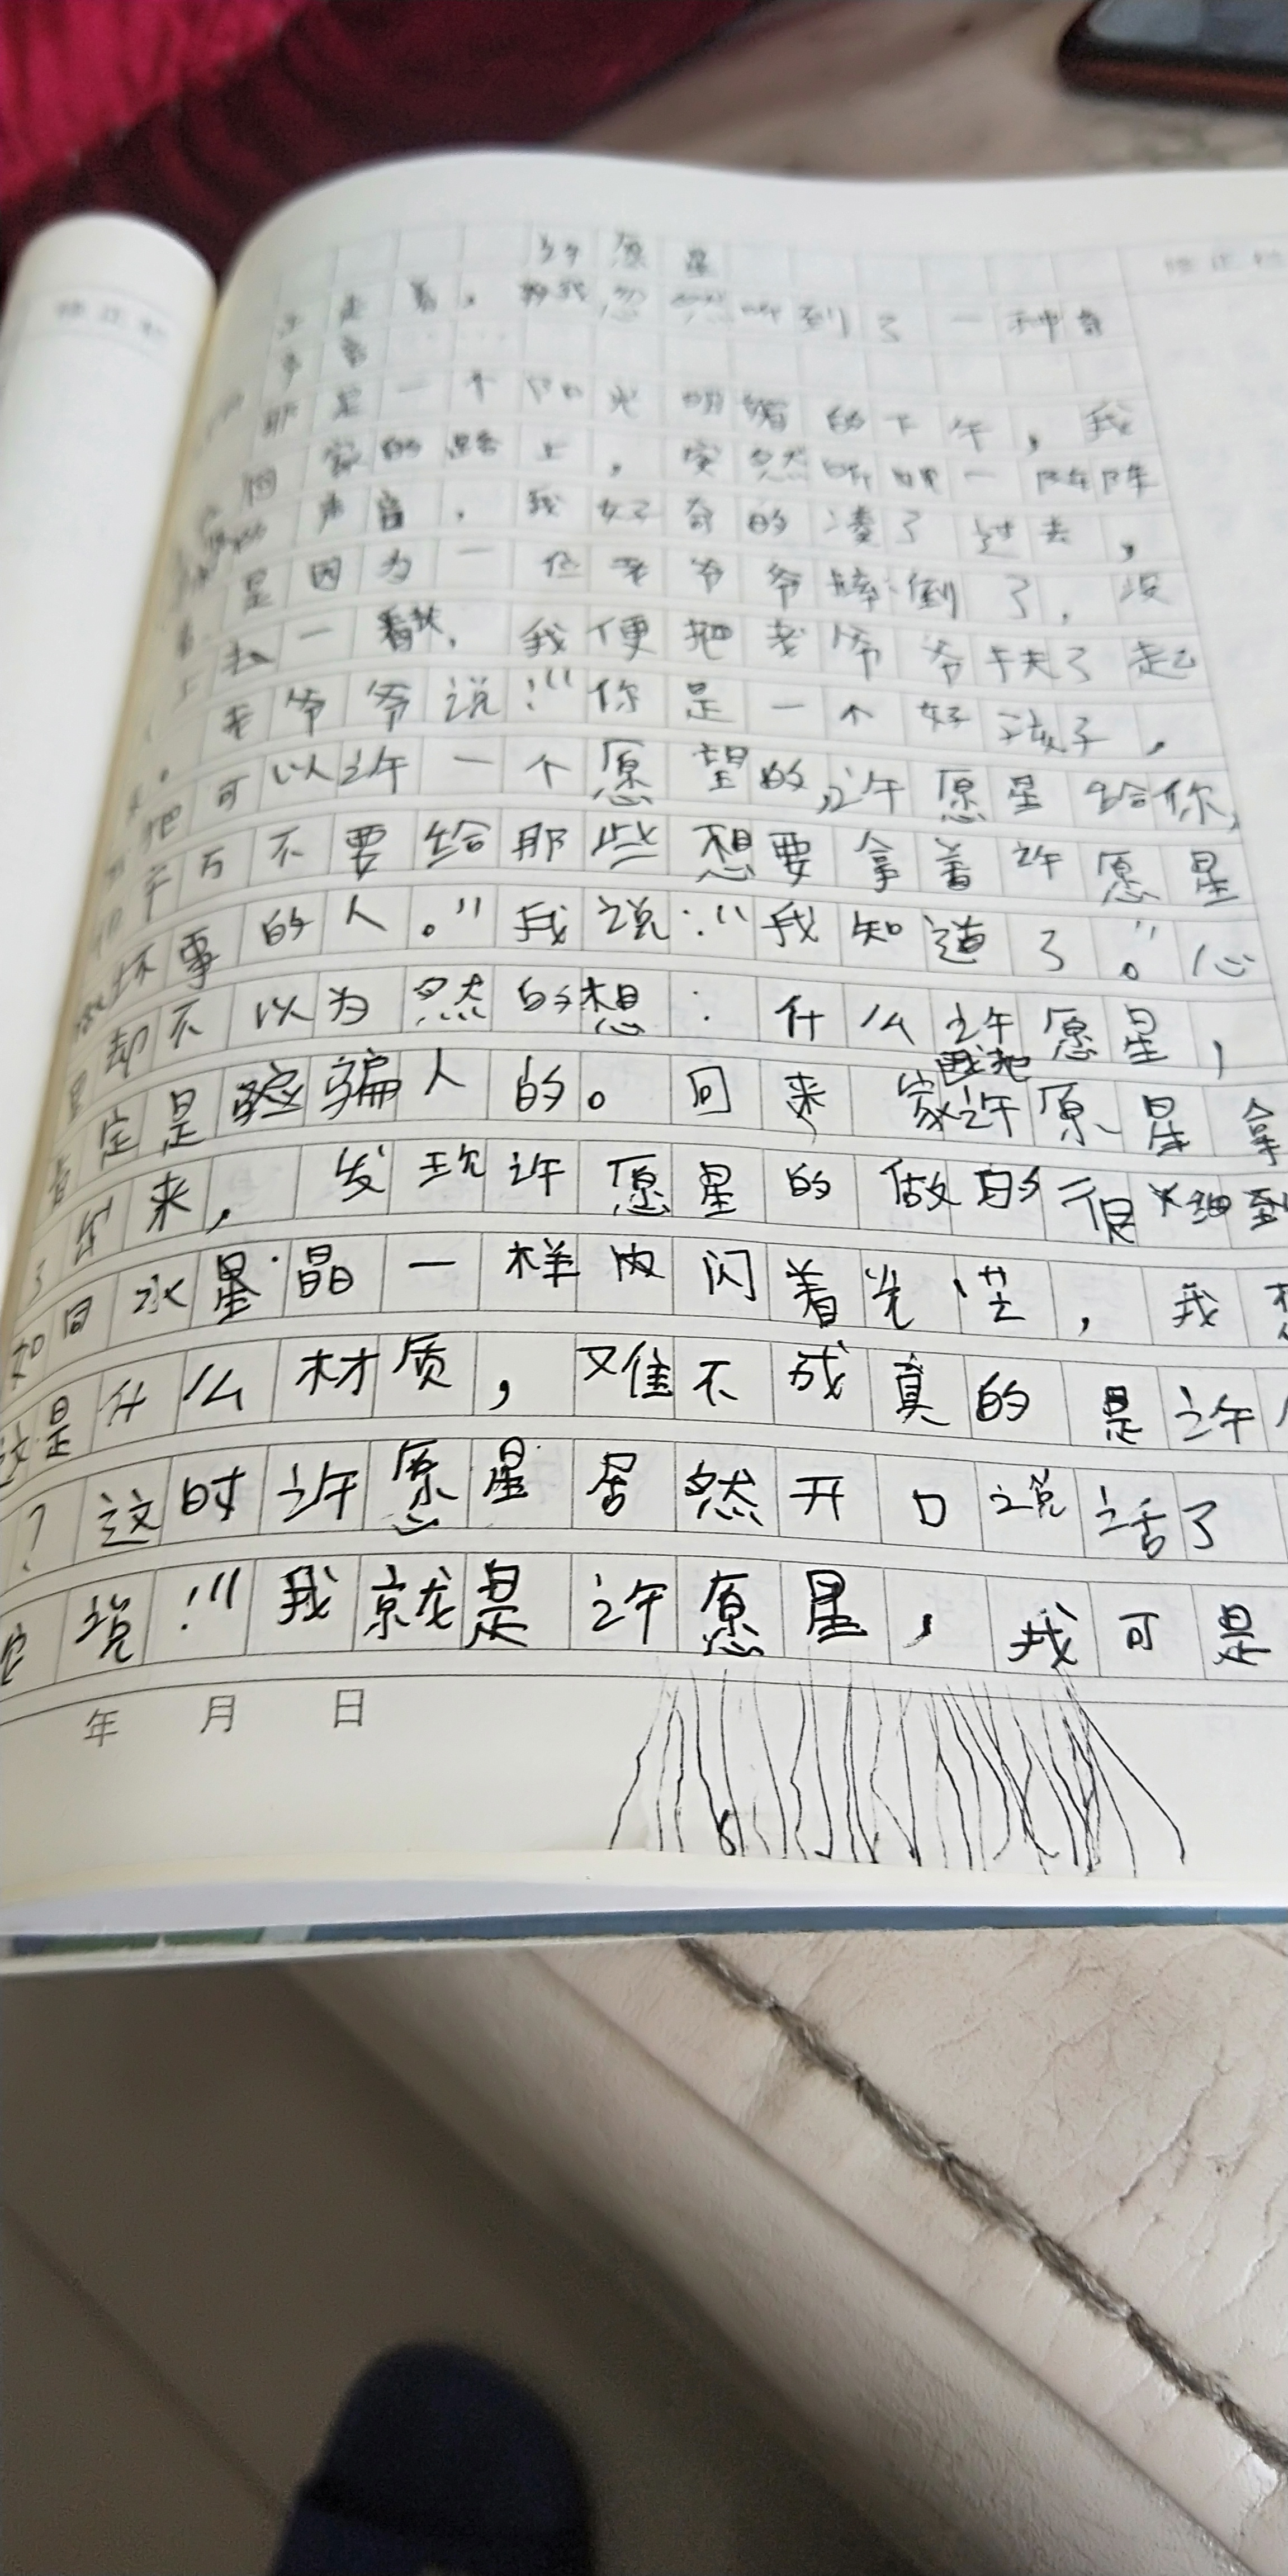 许愿星
走着，我忽然听到了一种奇
声音……
那是一个阳光明媚的下午，我
回家的路上，突然听见一阵阵
声音，我好奇的凑了过去，
是因为一位老爷爷摔倒了，没
上去一看，我便把老爷爷扶了起
来。老爷爷说：“你是一个好孩子，
把可以许一个愿望的许愿星给你，
千万不要给那些想要拿着许愿星
做坏事的人。”我说：“我知道了。”心
里却不以为然的想：什么许愿星，
肯定是骗人的。回来家我把许原星拿
了出来，发现许愿星的做的很细致
如同水晶一样闪着光芒，我
这是什么材质，难不成真的是许
？这时许愿星居然开口说话了
它说：“我就是许愿星，我可是
年 月 日